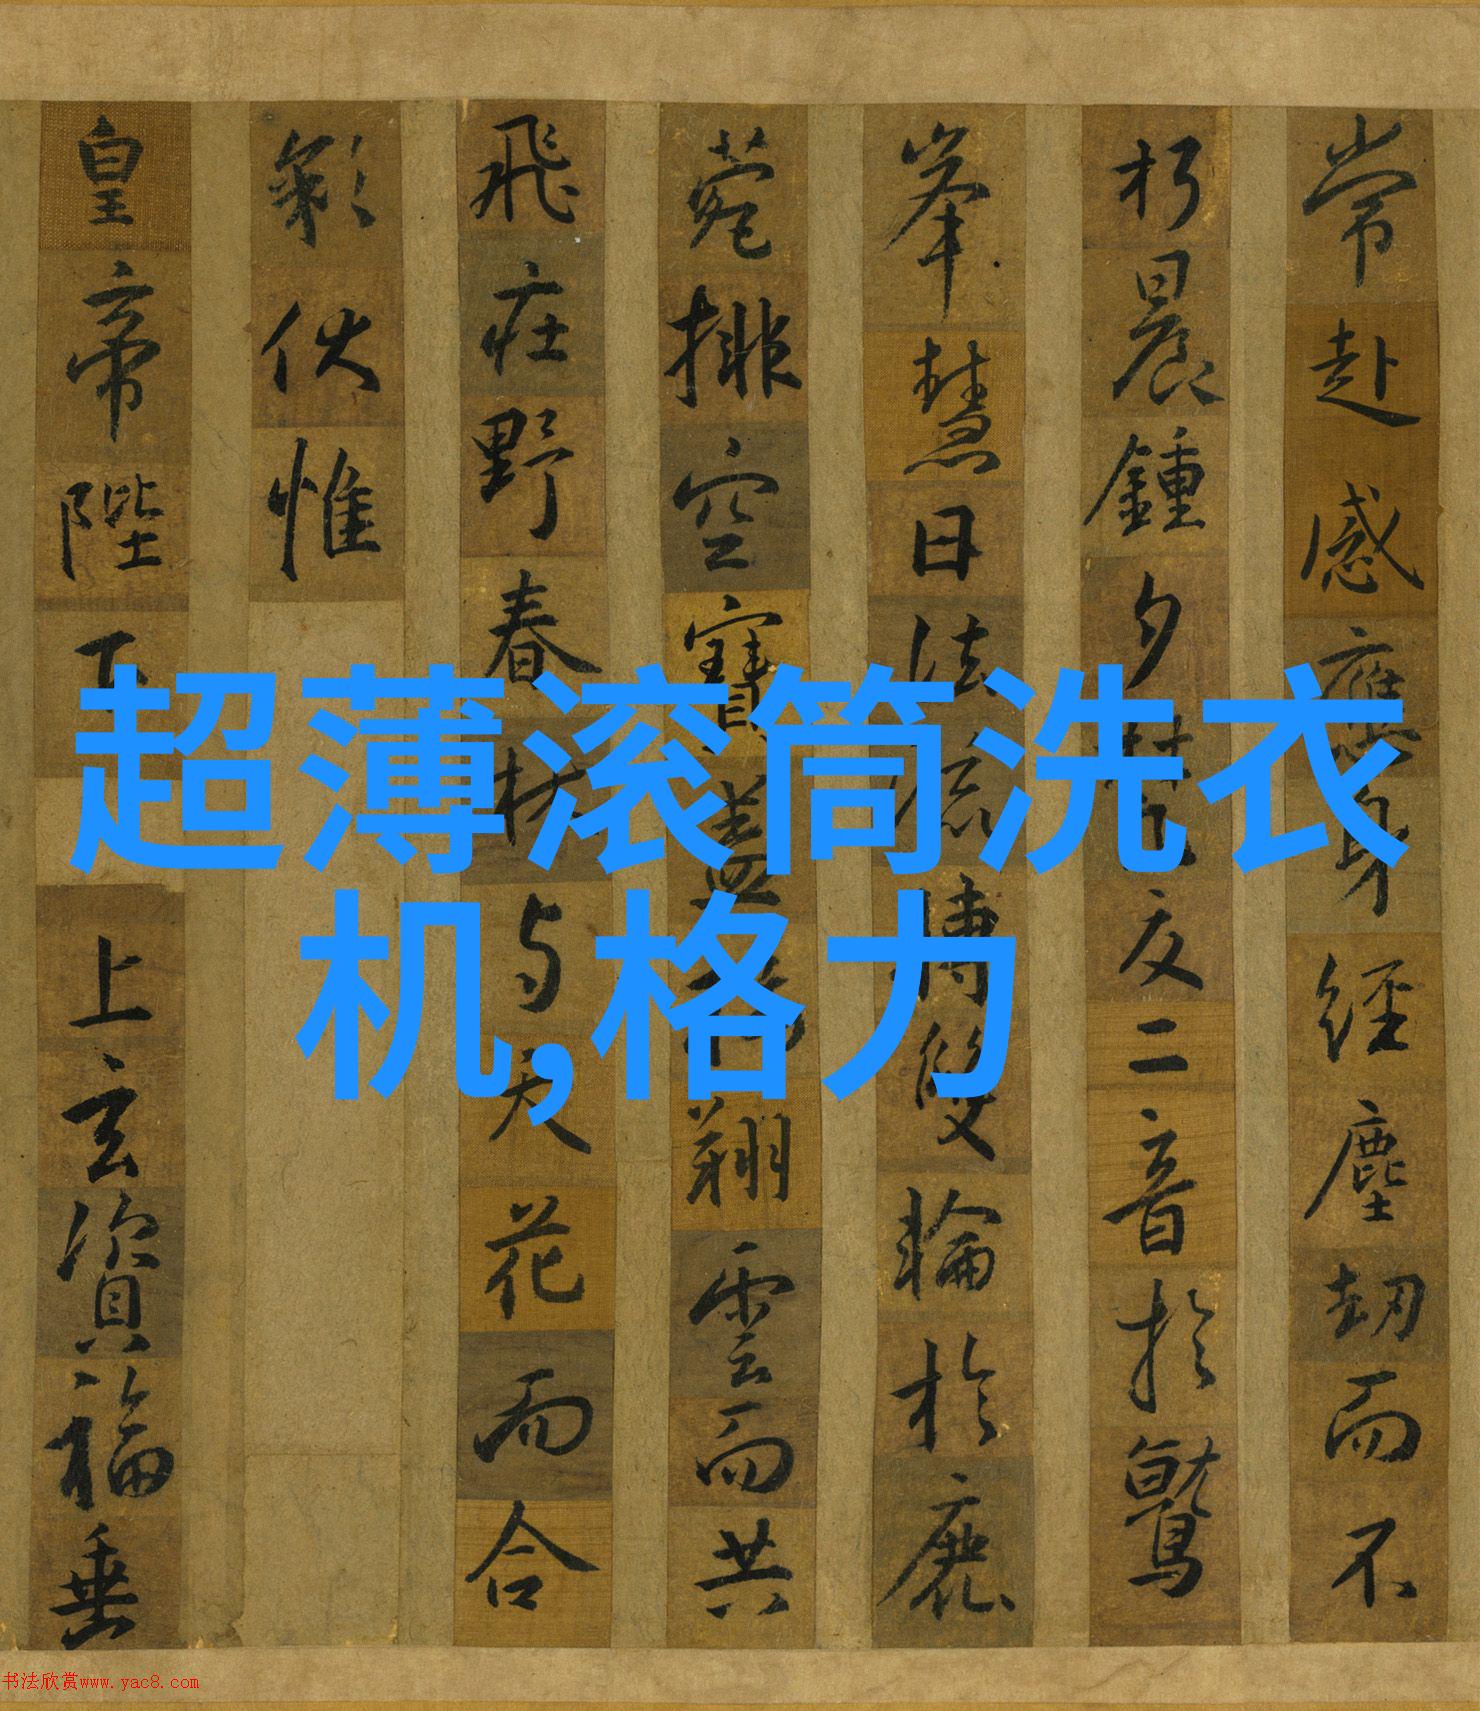 常赴感應身經塵劫而不
朽晨鍾夕梵交二音於鷲
峯慧日法流轉雙輪於鹿
菀排空寶蓋翔雲而共
飛莊野春林与天花而合
彩伏惟
皇帝陛下上玄資福垂
超薄滚筒洗衣
机,格力
书法欣赏www.yac8.com